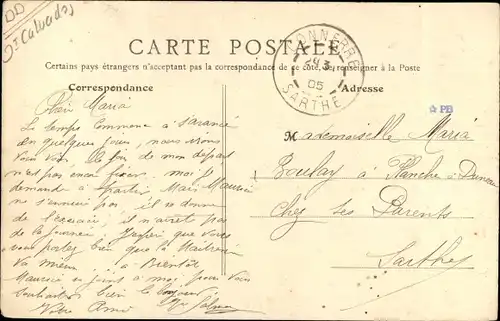 DD
Dt Calvados
CARTE POSTALE
Certains pays étrangers n'acceptent pas la correspondance de ce côté, se renseigner à la Poste
BONNERRE
3
05
SARTHE
Correspondance
Adresse
PB
Chère Maria
Le temps commence à s'avancé
en quelques jours, nous irons
vous voir, le jour de mon départ
n'est pas encore fixer. moi je
demande à partir Mais Maurice
ne s'ennuie pas il se donne
de l'exercice, il n'arrête pas
de la journée. J'espère que vous
vous portez bien que la
va mieux. à Bientôt
Maurice se joint à moi pour vous
souhaiter bien le bonjour
Votre Amie
Mademoiselle Maria
Toulay à Planche à
Chez Ses Parents
Sarthe